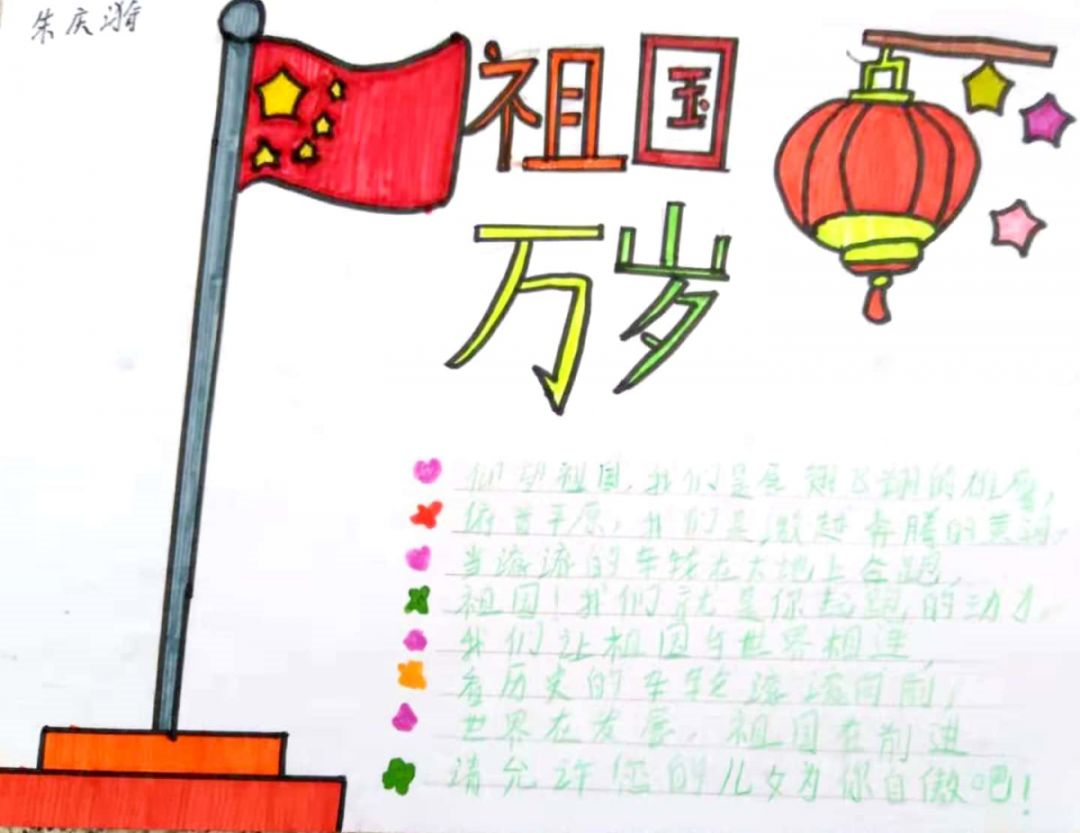 朱庆
祖国
万岁
仰望祖国,我们是展翅飞翔的雄鹰,
俯首平原,我们是激越奔腾的黄河。
当滚滚的车轮在大地上奔跑,
祖国!我们就是你起跑的动力。
我们让祖国与世界相连,
看历史的车轮滚滚向前,
世界在发展,祖国在前进
请允许您的儿女为你自傲吧!